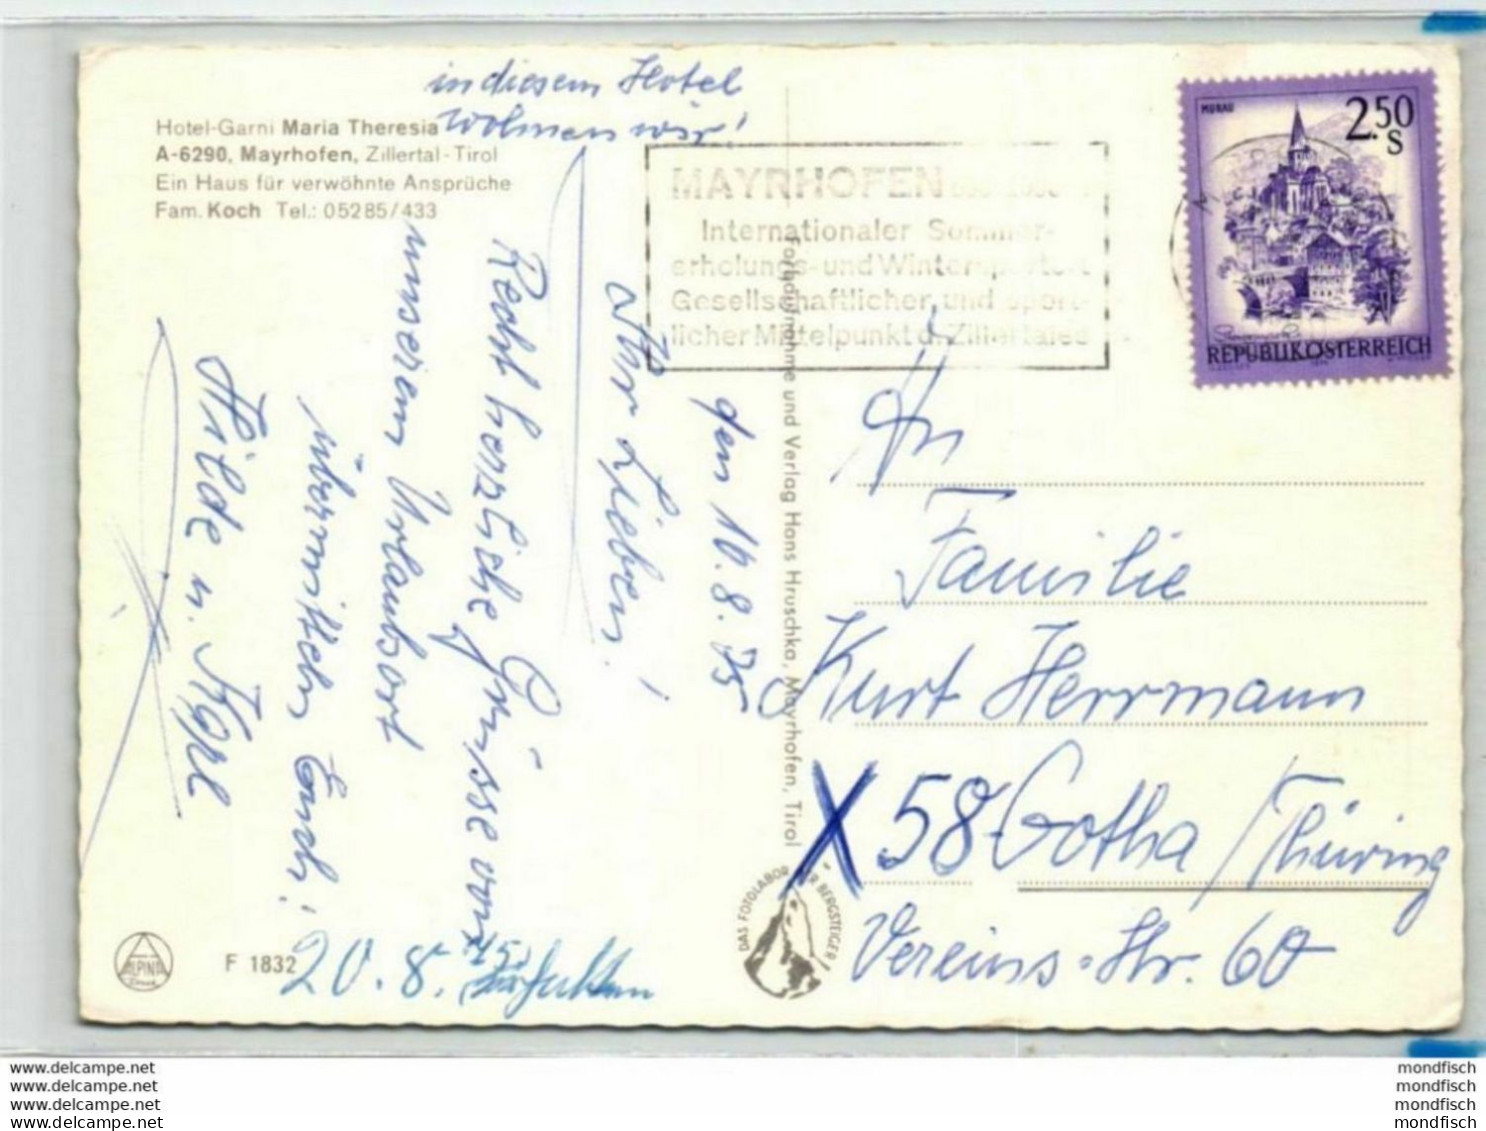 in diesem Hotel
wohnen wir!
Hotel-Garni Maria Theresia
A-6290, Mayrhofen, Zillertal-Tirol
Ein Haus für verwöhnte Ansprüche
Fam. Koch Tel.: 05285/433
MAYRHOFEN
Internationaler Sommer-
erholungs- und Wintersportort
Gesellschaftlicher und sport-
licher Mittelpunkt d. Zillertales
MURAU
2.50
S
REPUBLIK ÖSTERREICH
den 10.8.75
Ihr Lieben!
Recht herzliche Grüsse von
unserem Urlaubsort
übermitteln Euch!
Hilde u. Karl
20.8.75
erhalten
Farbaufnahme und Verlag Hans Hruschka, Mayrhofen, Tirol
An
Familie
Kurt Herrmann
X 58 Gotha / Thüring
Vereins-Str. 60
DAS FOTOLABOR DER BERGSTEIGER
ALPINA
F 1832
www.delcampe.net
www.delcampe.net
www.delcampe.net
www.delcampe.net
mondfisch
mondfisch
mondfisch
mondfisch